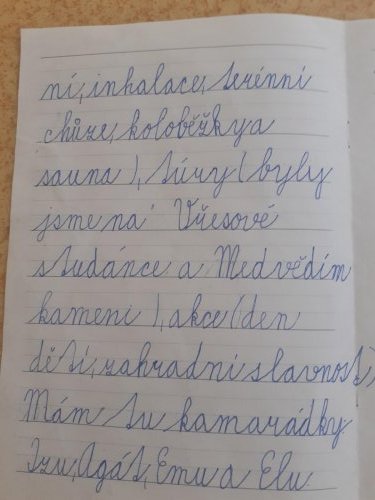 ní, inhalace, terénní
chůze, koloběžky a
sauna), túry (byly
jsme na Vřesové
studánce a Medvědím
kameni), akce (den
dětí, zahradní slavnost)
Mám tu kamarádky
Izu, Agát, Emu a Elu